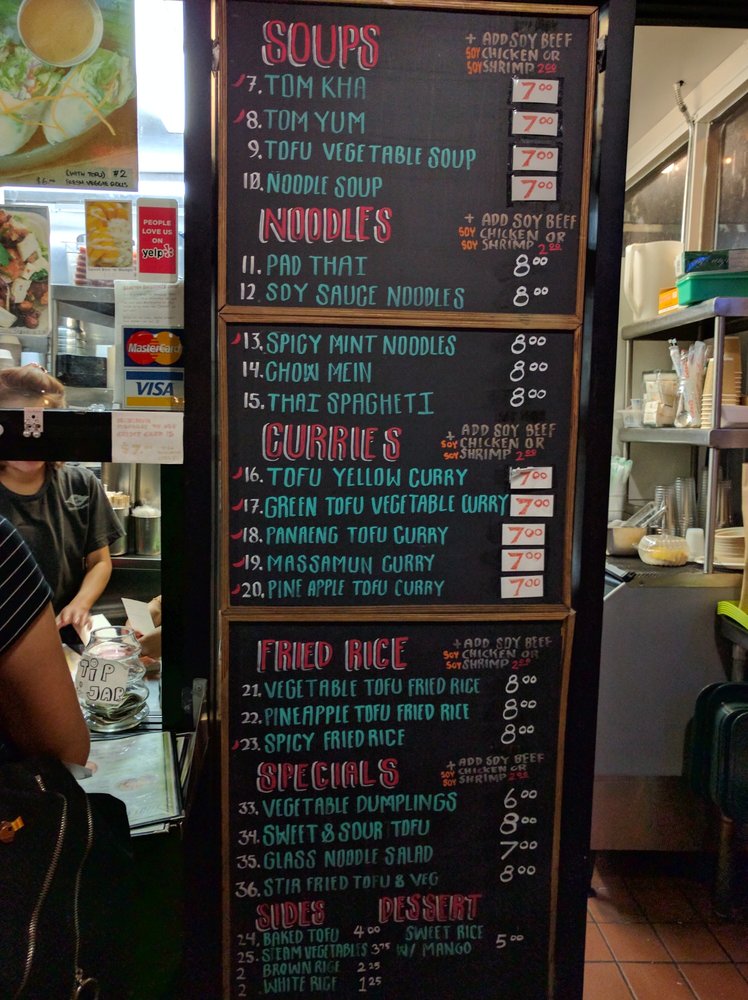 SOUPS
+ ADD SOY BEEF
SOY CHICKEN OR
SOY SHRIMP 2.00
7. TOM KHA 7.00
8. TOM YUM 7.00
9. TOFU VEGETABLE SOUP 7.00
10. NOODLE SOUP 7.00
NOODLES
+ ADD SOY BEEF
SOY CHICKEN OR
SOY SHRIMP 2.00
11. PAD THAI 8.00
12 SOY SAUCE NOODLES 8.00
13. SPICY MINT NOODLES 8.00
14. CHOW MEIN 8.00
15. THAI SPAGHETI 8.00
CURRIES
+ ADD SOY BEEF
SOY CHICKEN OR
SOY SHRIMP 2.00
16. TOFU YELLOW CURRY 7.00
17. GREEN TOFU VEGETABLE CURRY 7.00
18. PANAENG TOFU CURRY 7.00
19. MASSAMUN CURRY 7.00
20. PINE APPLE TOFU CURRY 7.00
FRIED RICE
+ ADD SOY BEEF
SOY CHICKEN OR
SOY SHRIMP 2.00
21. VEGETABLE TOFU FRIED RICE 8.00
22. PINEAPPLE TOFU FRIED RICE 8.00
23. SPICY FRIED RICE 8.00
SPECIALS
+ ADD SOY BEEF
SOY CHICKEN OR
SOY SHRIMP 2.00
33. VEGETABLE DUMPLINGS 6.00
34. SWEET & SOUR TOFU 8.00
35. GLASS NOODLE SALAD 7.00
36. STIR FRIED TOFU & VEG 8.00
SIDES
24. BAKED TOFU 4.00
25. STEAM VEGETABLES 3.75
2 BROWN RICE 2.25
2 WHITE RICE 1.25
DESSERT
SWEET RICE
W/ MANGO 5.00
(WITH TOFU) #2
FRESH VEGGIE ROLLS
PEOPLE
LOVE US
ON
yelp
MasterCard
VISA
TIP
JAR